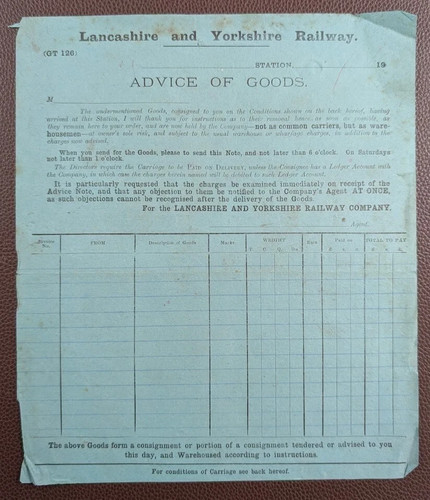 Lancashire and Yorkshire Railway.
(GT 126)
STATION, 19
ADVICE OF GOODS.
M
The undermentioned Goods, consigned to you on the Conditions shown on the back hereof, having
arrived at this Station, I will thank you for instructions as to their removal hence as soon as possible, as
they remain here to your order, and are now held by the Company—not as common carriers, but as ware-
housemen—at owner's sole risk, and subject to the usual warehouse or wharfage charges, in addition to the
charges now advised.
When you send for the Goods, please to send this Note, and not later than 6 o'clock. On Saturdays
not later than 1 o'clock.
The Directors require the Carriage to be PAID ON DELIVERY, unless the Consignee has a Ledger Account with
the Company, in which case the charges herein named will be debited to such Ledger Account.
It is particularly requested that the charges be examined immediately on receipt of the
Advice Note, and that any objection to them be notified to the Company's Agent AT ONCE,
as such objections cannot be recognised after the delivery of the Goods.
For the LANCASHIRE AND YORKSHIRE RAILWAY COMPANY,
Agent.
No. FROM Description of Goods Marks WEIGHT Rate Paid on TOTAL TO PAY
The above Goods form a consignment or portion of a consignment tendered or advised to you
this day, and Warehoused according to instructions.
For conditions of Carriage see back hereof.